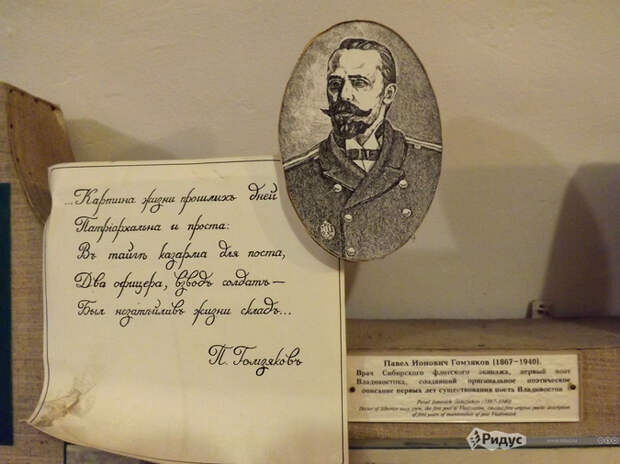 ...Картина жизни прошлихъ дней
Патріархальна и проста:
Въ тайгѣ казарма для поста,
Два офицера, взводъ солдатъ—
Былъ незатѣйливъ жизни складъ...
П. Гомзяковъ
Павел Ионович Гомзяков (1867–1940).
Врач Сибирского флотского экипажа, первый поэт
Владивостока, создавший оригинальное поэтическое
описание первых лет существования поста Владивосток
Pavel Ionovich Gomzyakov (1867-1940)
Doctor of Siberian navy crew, the first poet of Vladivostok, created first original poetic description
of first years of
post Vladivostok
Ридус